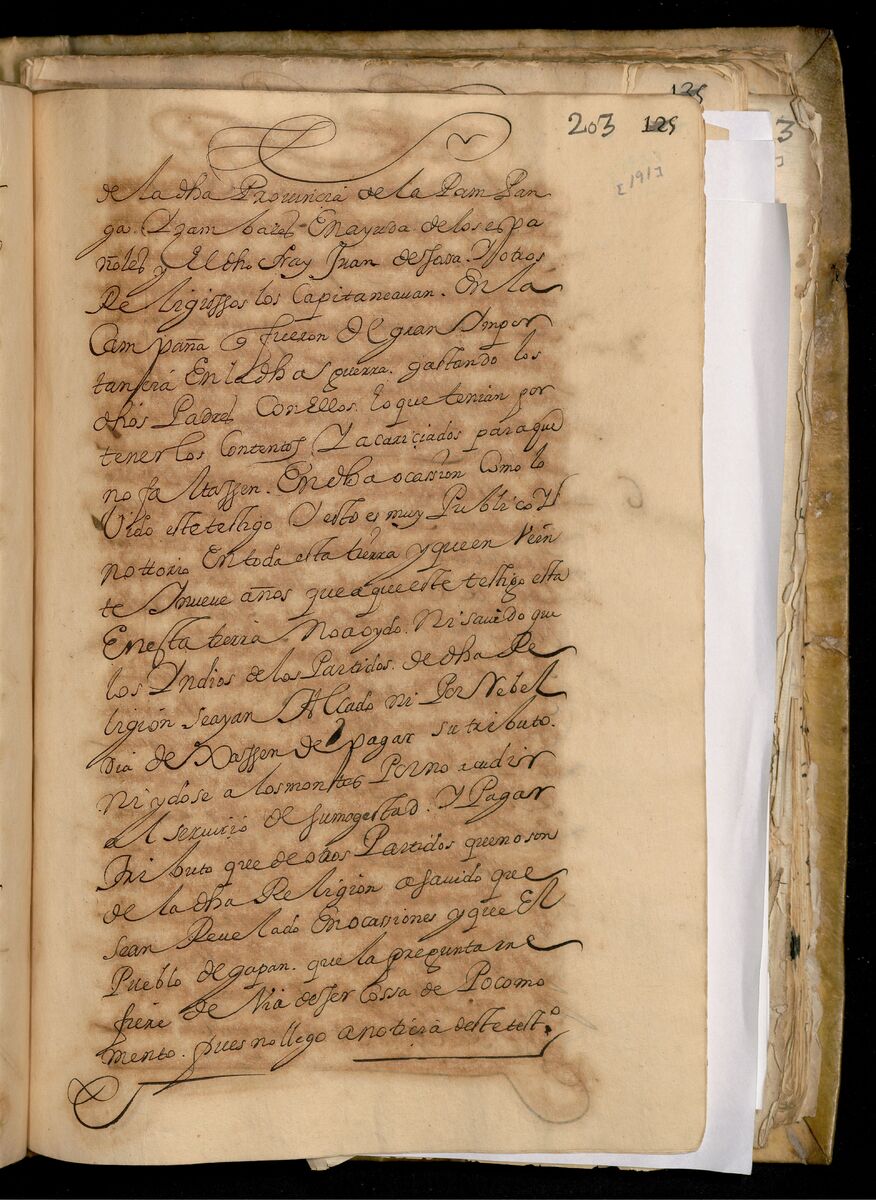 203 125
de la dha Provincia de la Pam Pan
ga. Yzambales En ayuda de los espa
ñoles, y El dho fray Juan de Y otros
Religiossos los Capitaneauan. En la
Campaña q fueron de gran Impor
tancia En la dha guerra. gastando los
dhos Padres Con Ellos. lo que tenian por
tenerlos Contentos Y acariciados para que
no faltassen. En dha ocassion Como lo
Vido este testigo Y esto es muy Publico Y
nottorio En toda esta tierra y que en Vein
te Y nueve años que a que este testigo esta
En esta tierra No a oydo. Ni sauido que
los Yndios de los Partidos. de dha Re
ligion se ayan Alçado ni Por Rebel
dia dexassen de pagar su tributo.
Ni ydose a los montes Por no acudir
al seruicio de su magestad. Y Pagar
tributo que de otros Partidos que no son
de la dha Religion a sauido que
sean Reuelado En ocassiones y que El
Pueblo de gapan. que la pregunta rre
fiere de Via de ser Cossa de Poco mo
mento. pues no llego a noticia deste testº